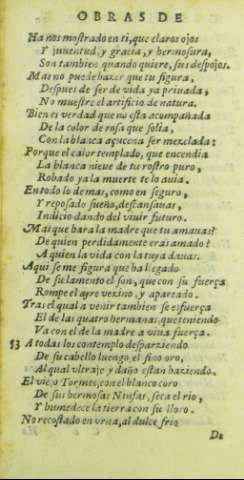 OBRAS DE
Ha nos mostrado en ti, que claros ojos
Y juuentud, y gracia, y hermosura,
Son tambien quando quiere, sus despojos.
Mas no puede hazer que tu figura,
Despues de ser de vida ya priuada,
No muestre el artificio de natura.
Bien es verdad que no esta acompañada
De la color de rosa que solia,
Con la blanca açucena ser mezclada:
Porque el calor templado, que encendia
La blanca nieue de tu rostro puro,
Robado ya la muerte te lo auia.
En todo lo de mas, como en seguro,
Y reposado sueño, descansauas,
Indicio dando del viuir futuro.
Mas que hara la madre que tu amauas?
De quien perdidamente eras amado?
A quien la vida con la tuya dauas.
Aqui se me figura que ha llegado
De su lamento el son, que con su fuerça
Rompe el ayre vezino, y apartado.
Tras el qual a venir tambien se esfuerça
El de las quatro hermanas, que teniendo
Va con el de la madre a viua fuerça.
53 A todas los contemplo desparziendo
De su cabello luengo, el fino oro,
Al qual vltraje y daño estan haziendo.
El viejo Tormes, con el blanco coro
De sus hermosas Ninfas, seca el rio,
Y humedece la tierra con su lloro.
No recostado en vrna, al dulce frio
De